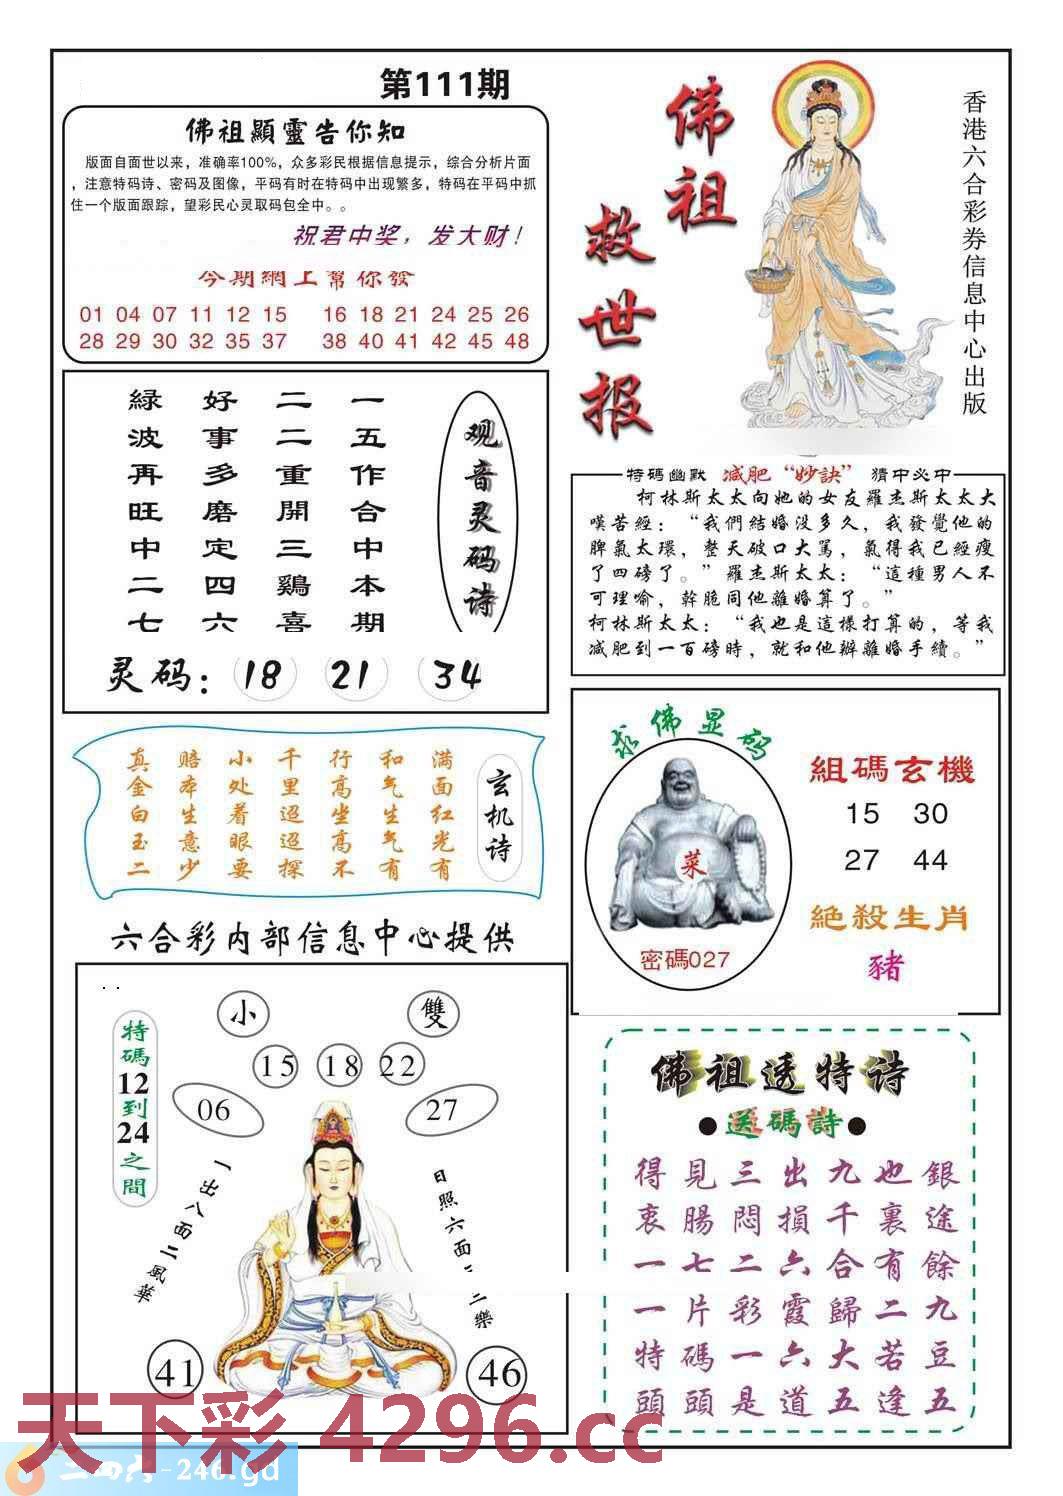 第111期
佛祖顯靈告你知
版面自面世以来，准确率100%，众多彩民根据信息提示，综合分析片面
，注意特码诗、密码及图像，平码有时在特码中出现繁多，特码在平码中抓
住一个版面跟踪，望彩民心灵取码包全中。。
祝君中奖，发大财！
今期網上幫你發
01 04 07 11 12 15 16 18 21 24 25 26
28 29 30 32 35 37 38 40 41 42 45 48
佛祖
救世报
香港六合彩券信息中心出版
观音灵码诗
一五作合中本期
二二重開三鷄喜
好事多磨定四六
緑波再旺中二七
灵码：18 21 34
特碼幽默 减肥“妙訣” 猜中必中
柯林斯太太向她的女友羅杰斯太太大
嘆苦經：“我們結婚没多久，我發覺他的
脾氣太環，整天破口大駡，氣得我已經瘦
了四磅了。”羅杰斯太太：“這種男人不
可理喻，幹脆同他離婚算了。”
柯林斯太太：“我也是這樣打算的，等我
减肥到一百磅時，就和他辦離婚手續。”
玄机诗
满面红光有
和气生气有
行高坐高不
千里迢迢探
小处着眼要
赔本生意少
真金白玉二
求佛显码
菜
密碼027
組碼玄機
15 30
27 44
絕殺生肖
豬
六合彩内部信息中心提供
小
雙
15 18 22
06
27
特碼12到24之間
一出八面二風華
日照六面
二樂
41
46
佛祖透特诗
●送碼詩●
得見三出九也銀
衷腸悶損千裏途
一七二六合有餘
一片彩霞歸二九
特碼一六大若豆
頭頭是道五逢五
天下彩 4296.cc
二四六-246.gd